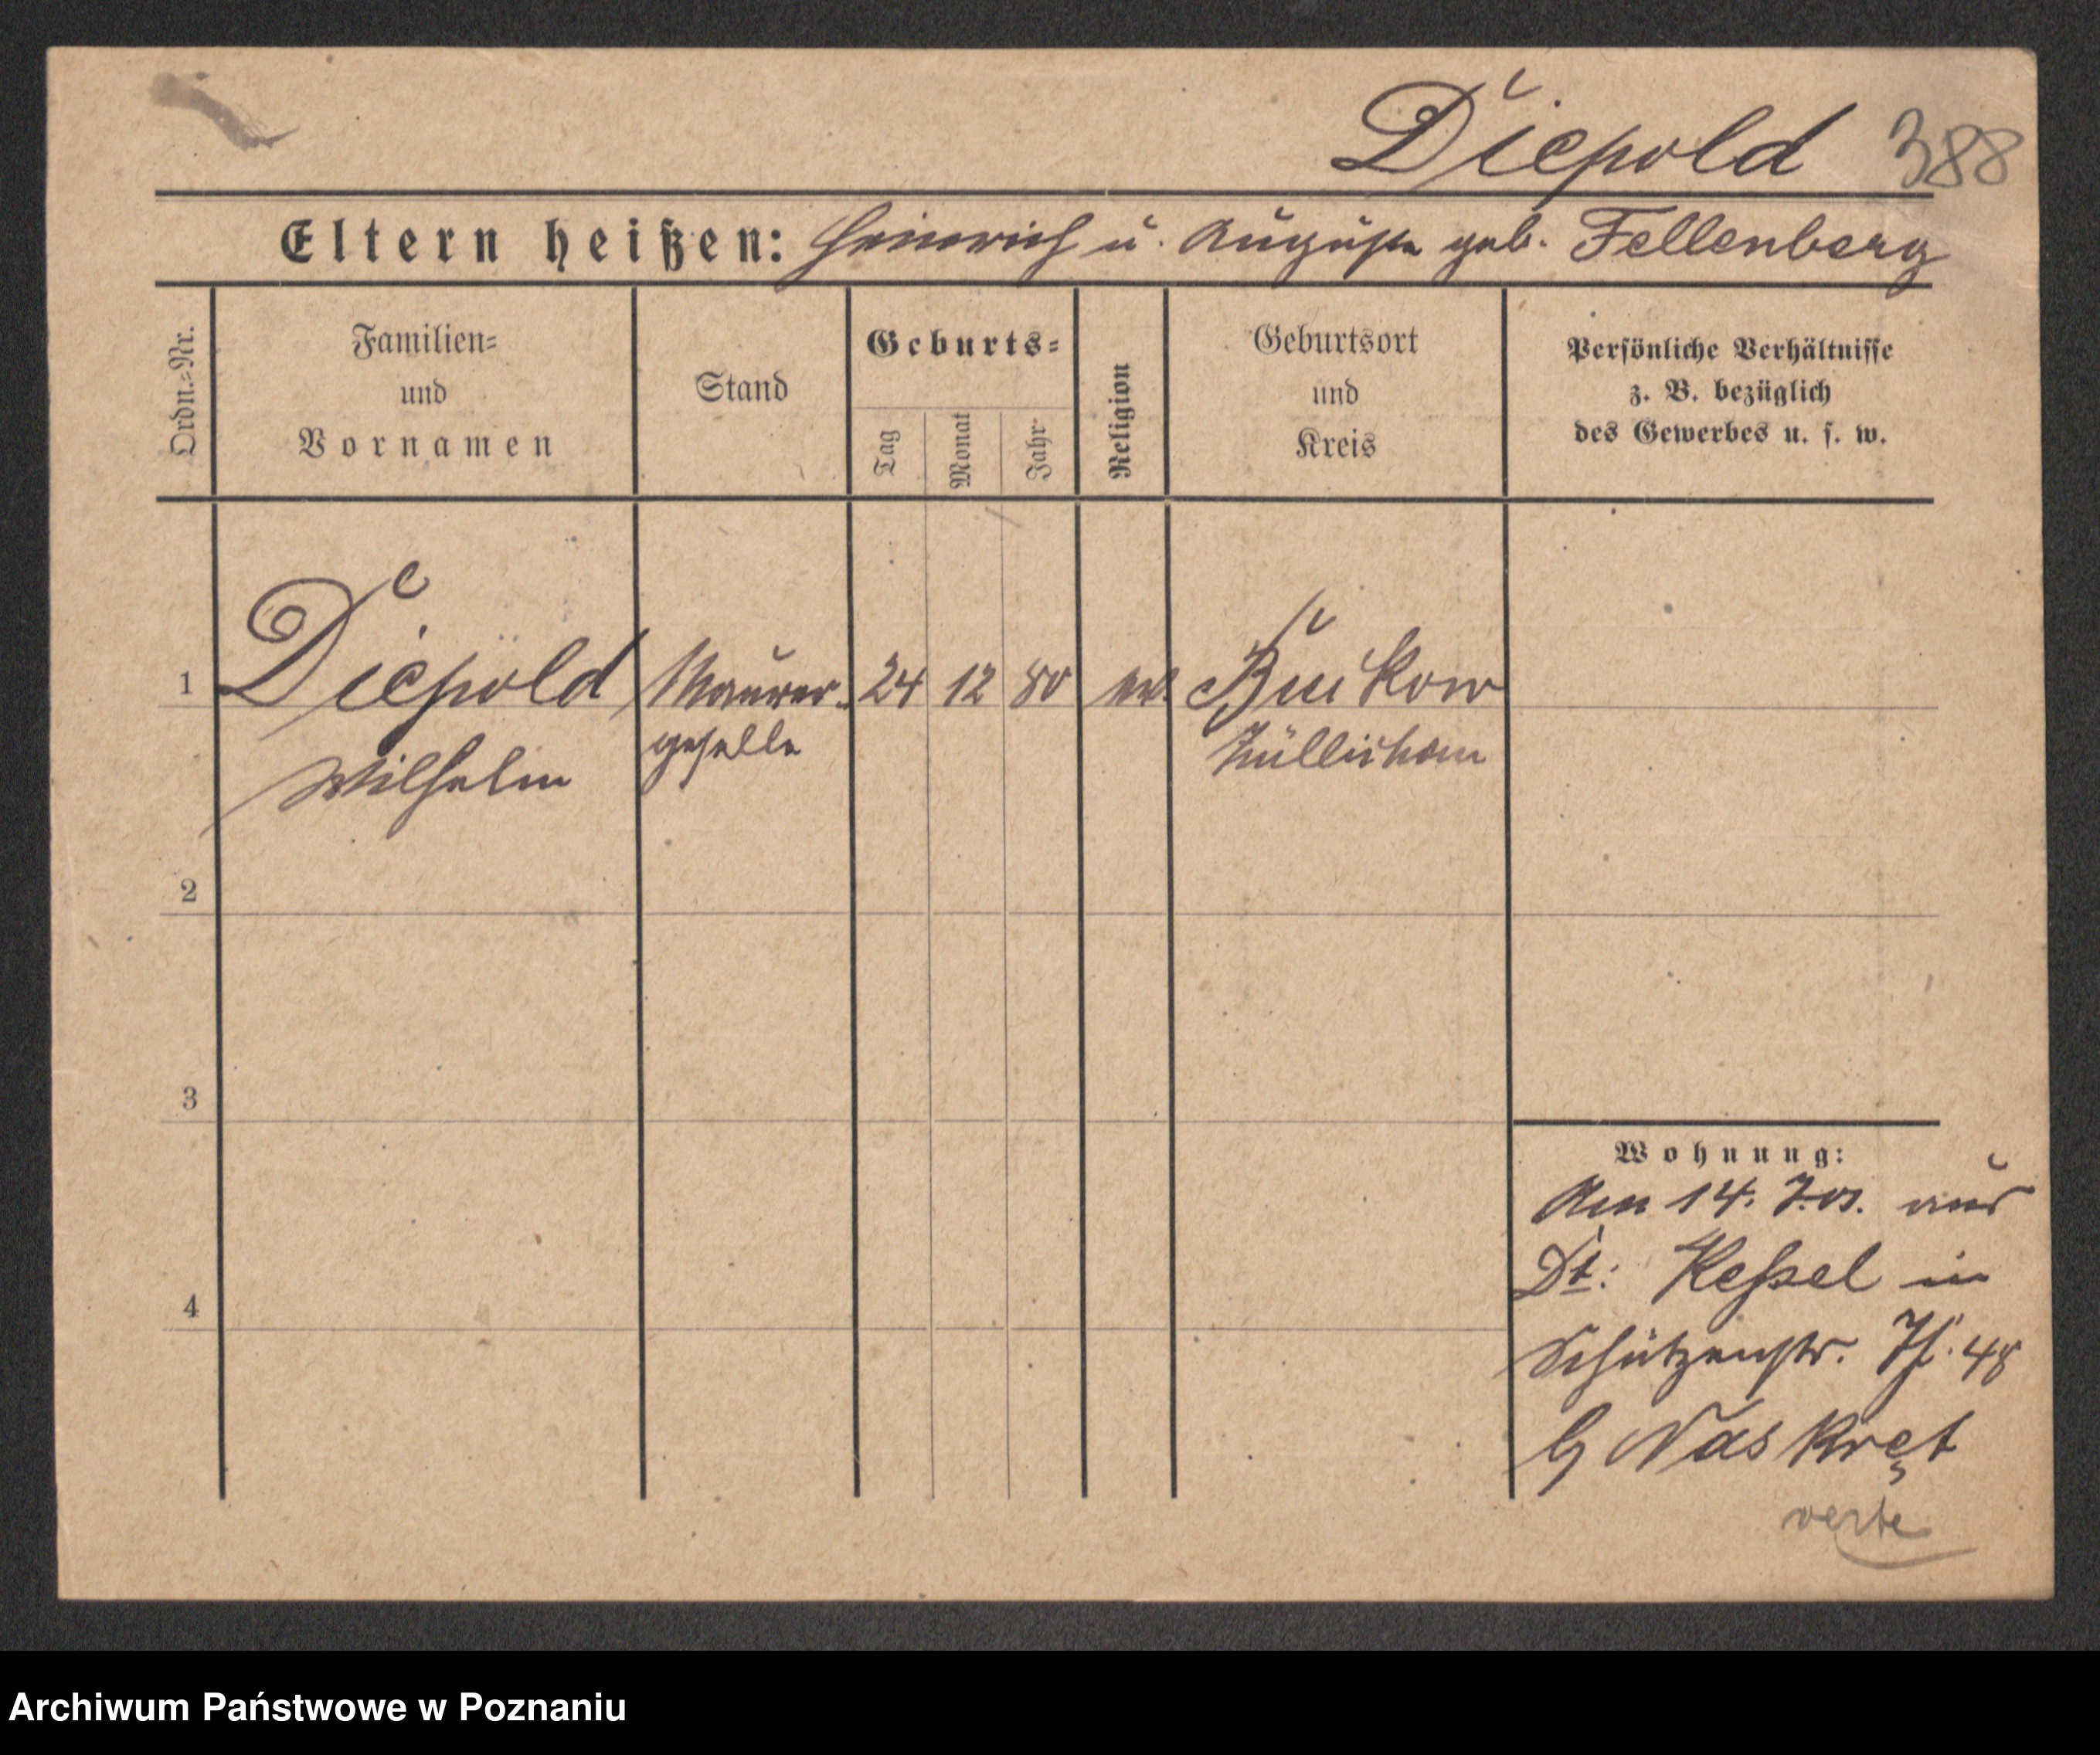 Diepold 388
Eltern heißen: Heinrich u. Auguste geb. Fellenberg
Ordn.-Nr.
Familien-
und
Vornamen
Stand
Geburts-
Tag
Monat
Jahr
Religion
Geburtsort
und
Kreis
Persönliche Verhältnisse
z. B. bezüglich
des Gewerbes u. s. w.
1 Diepold Maurer- 24 12 80 ev. Buckow
Wilhelm geselle Züllichau
2
3
4
Wohnung:
Am 14. 7. 03. aus
Dt: Keßel in
Schützenstr. 48
b/ Naskręt
verte
Archiwum Państwowe w Poznaniu